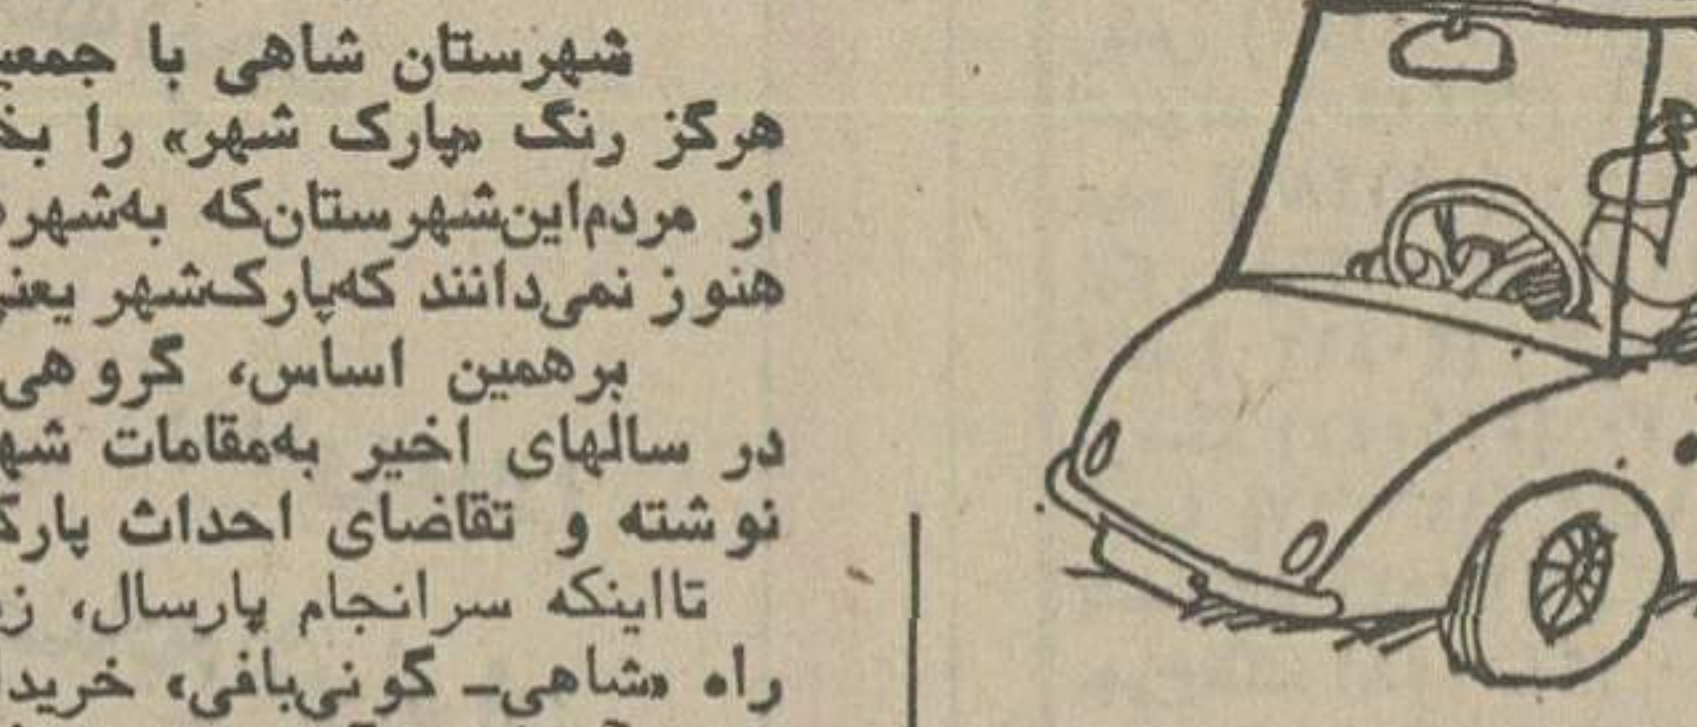 شهرستان شاهی با
هرگز رنگ «پارک شهر» را
از مردم‌این‌شهرستان‌که
هنوز نمی‌دانند که‌پارک‌شهر یعنی
برهمین اساس، گروهی
در سالهای اخیر به‌مقامات
نوشته و تقاضای احداث
تااینکه سرانجام پارسال،
راه «شاهی- گونی‌بافی»